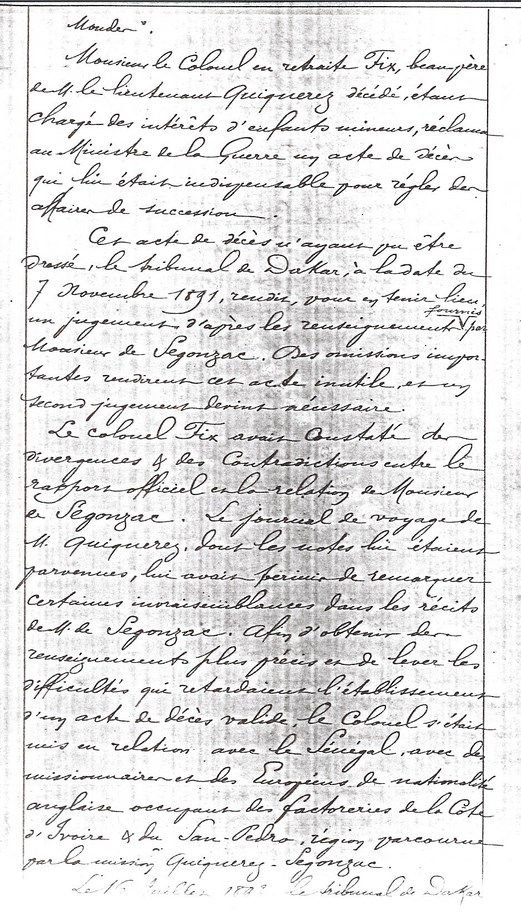 Monsieur le Colonel en retraite Fix, beau père
de M. le lieutenant Quiquerez décédé, étant
chargé des intérêts d'enfants mineurs, réclama
au Ministre de la Guerre un acte de décès
qui lui était indispensable pour régler des
affaires de succession.
Cet acte de décès n'ayant pu être
dressé, le tribunal de Dakar, à la date du
7 Novembre 1891, rendit, pour en tenir lieu,
un jugement d'après les renseignements fournis par
Monsieur de Segonzac. Des omissions impor-
tantes rendirent cet acte inutile, et un
second jugement devint nécessaire.
Le colonel Fix avait constaté des
divergences & des contradictions entre le
rapport officiel et la relation de Monsieur
de Segonzac. Le journal de voyage de
M. Quiquerez, dont les notes lui étaient
parvenues, lui avait permis de remarquer
certaines invraisemblances dans les récits
de M. de Segonzac. Afin d'obtenir des
renseignements plus précis et de lever les
difficultés qui retardaient l'établissement
d'un acte de décès valide, le Colonel s'était
mis en relation avec le Sénégal, avec des
missionnaires et des Européens de nationalité
anglaise occupant des factoreries de la Côte
d'Ivoire & du San-Pedro, région parcourue
par la mission Quiquerez-Segonzac.
Le 15 Juillet 189 le tribunal de Dakar